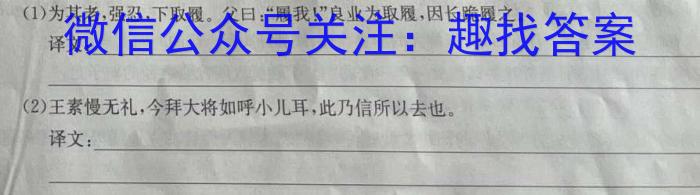 (1)为其老,强忍,下取履。父曰:“履我!”良业为取履,因长跪履之。
微信公众号关注：趣找答案
译文:
(2)王素慢无礼,今拜大将如呼小儿耳,此乃信所以去也。
译文: